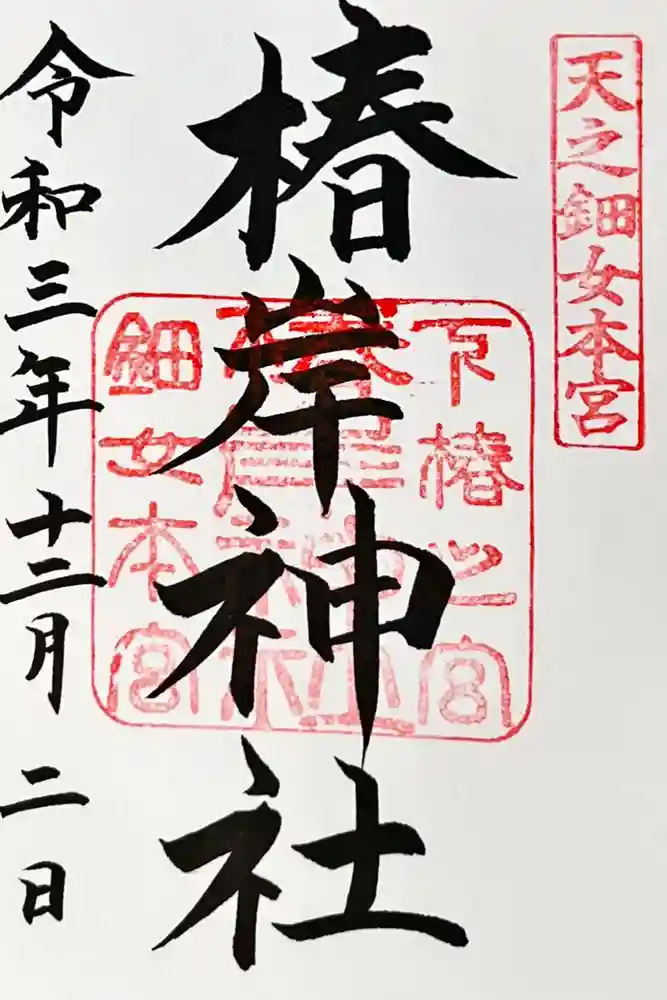 天之鈿女本宮
椿岸神社
下椿之宮
椿岸神社
鈿女本宮
令和三年十二月二日